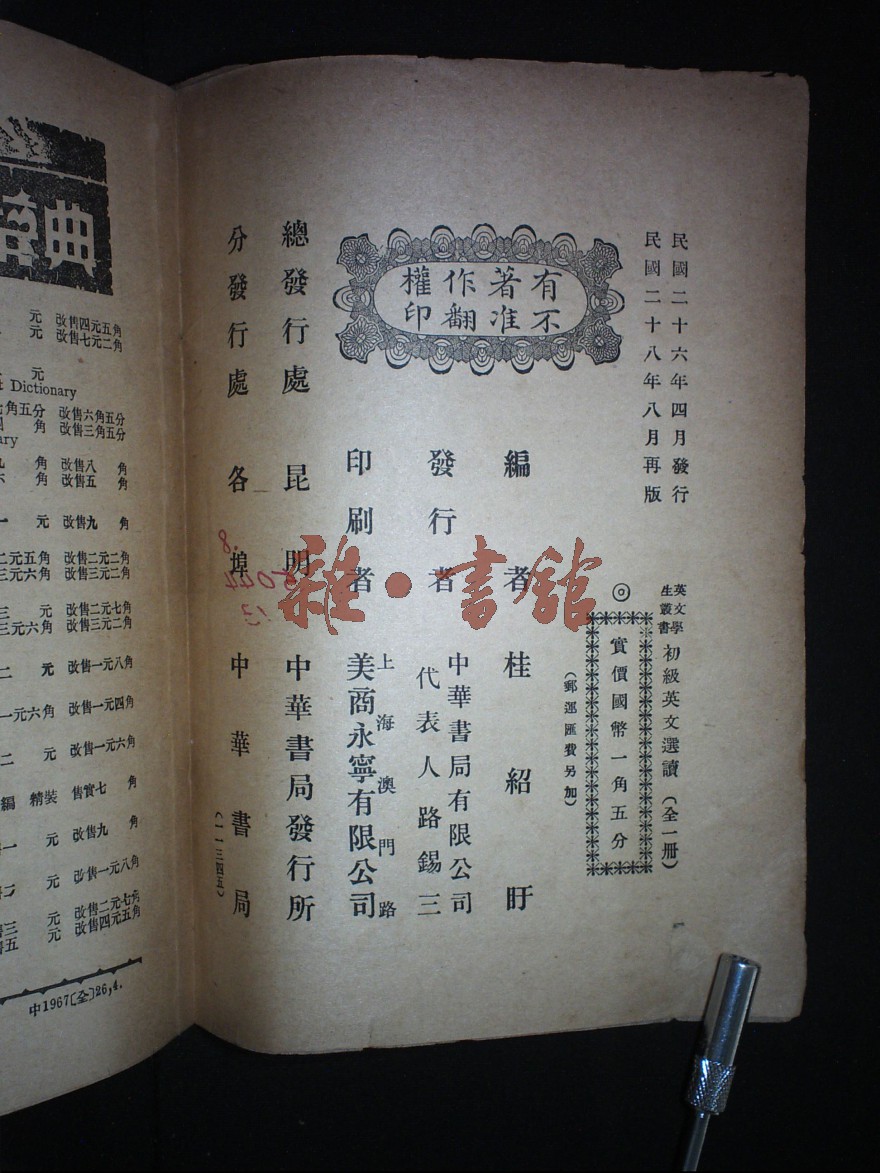 民國二十六年四月發行
民國二十八年八月再版
英文學生叢書 初級英文選讀（全一冊）
◎實價國幣一角五分
（郵運匯費另加）
有不著准作翻權印
編者 桂紹盱
發行者 中華書局有限公司
代表人路錫三
印刷者 上海澳門路
美商永寧有限公司
總發行處 昆明 中華書局發行所
分發行處 各埠 中華書局
（一一三四五）
雜·書館
典
元 改售四元五角
元 改售七元二角
元
Dictionary
角五分 改售六角五分
角 改售三角五分
ary
角 改售八角
角 改售五角
一元 改售九角
二元五角 改售二元二角
三元六角 改售三元二角
三元 改售二元七角
三元六角 改售三元二角
二元 改售一元八角
一元六角 改售一元四角
二元 改售一元六角
編 精裝 售實七角
一元 改售九角
元 改售一元八角
三元 改售二元七角
五元 改售四元五角
中1967〔全〕26,4.